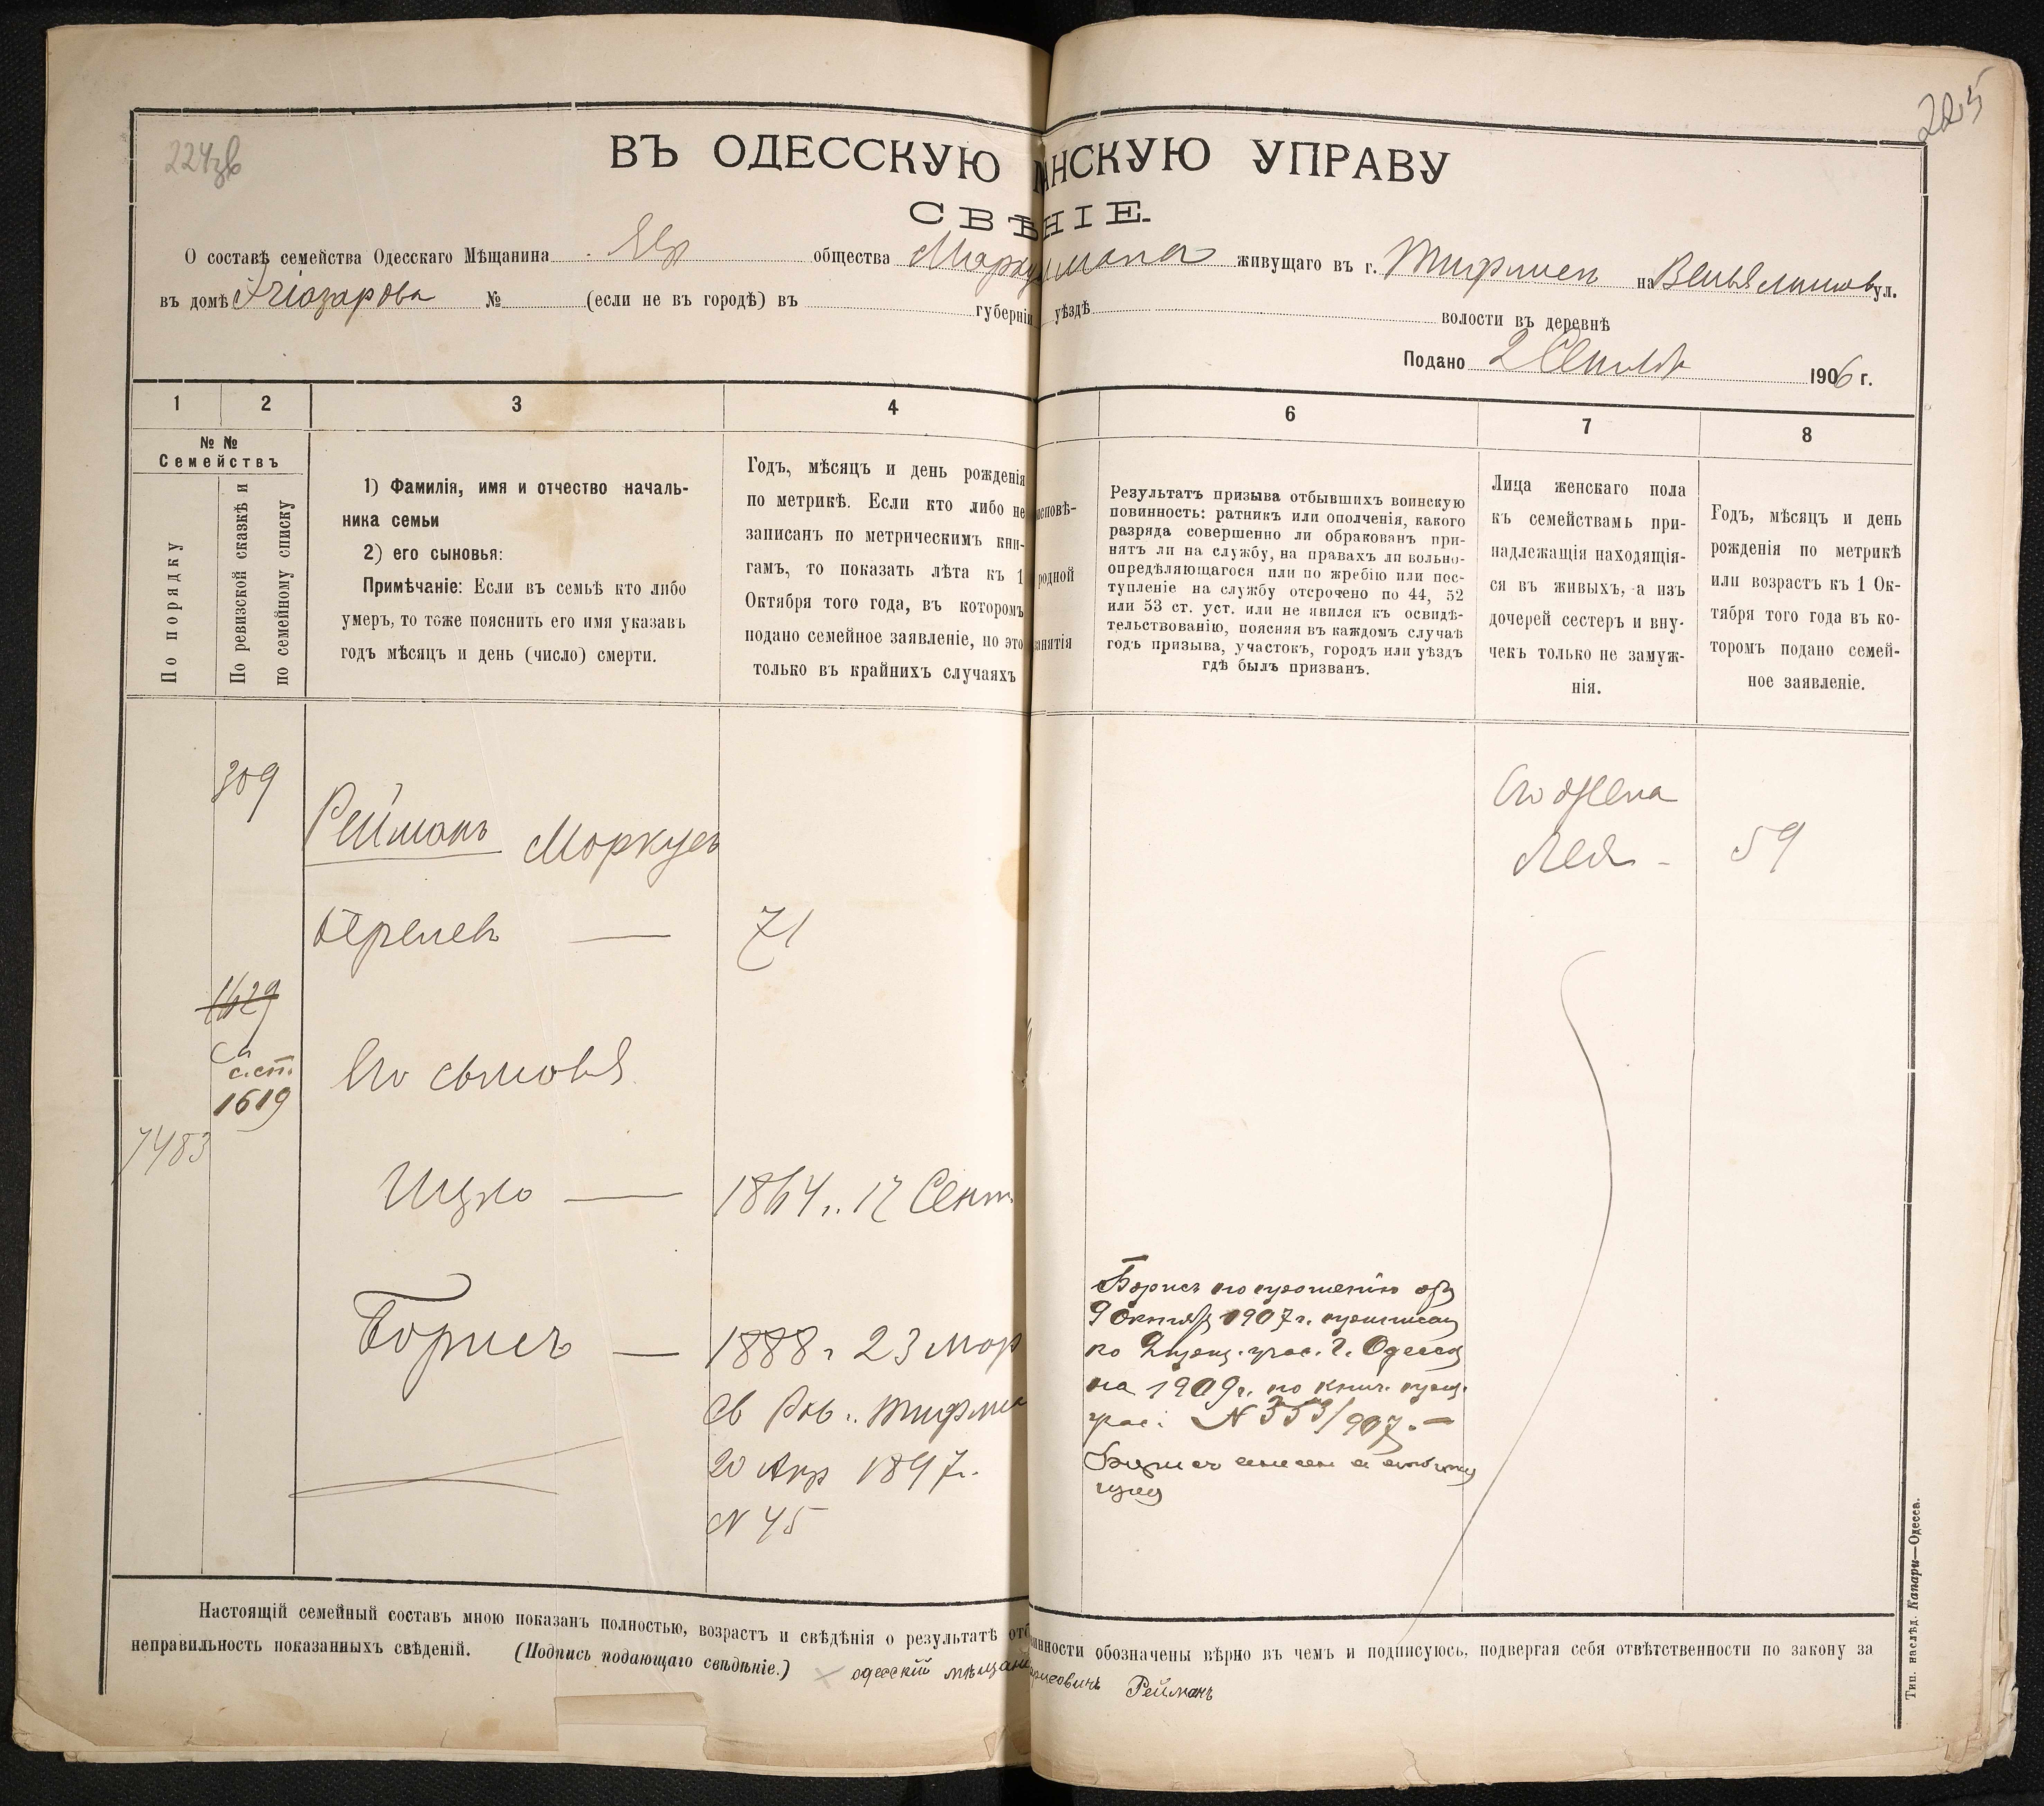 225
224зв
ВЪ ОДЕССКУЮ АНСКУЮ УПРАВУ
СВѢНІЕ.
О составѣ семейства Одесскаго Мѣщанина Евр общества Марку ймана живущаго въ г. Тифлисѣ на Вельяминов ул.
въ домѣ № (если не въ городѣ) въ губерніи уѣздѣ волости въ деревнѣ
Подано 2 Сентя 1906 г.
1 2 3 4 6 7 8
№ № Семействъ
По порядку
По ревизской сказкѣ и по семейному списку
1) Фамилія, имя и отчество началь-
ника семьи
2) его сыновья:
Примѣчаніе: Если въ семьѣ кто либо
умеръ, то тоже пояснить его имя указавъ
годъ мѣсяцъ и день (число) смерти.
Годъ, мѣсяцъ и день рожденія
по метрикѣ. Если кто либо не
записанъ по метрическимъ кни-
гамъ, то показать лѣта къ 1
Октября того года, въ которомъ
подано семейное заявленіе, но это
только въ крайнихъ случаяхъ
исповѣ-
родной
занятія
Результатъ призыва отбывшихъ воинскую
повинность: ратникъ или ополченія, какого
разряда совершенно ли обракованъ при-
нятъ ли на службу, на правахъ ли вольно-
опредѣляющагося или по жребію или пос-
тупленіе на службу отсрочено по 44, 52
или 53 ст. уст. или не явился къ освидѣ-
тельствованію, поясняя въ каждомъ случаѣ
годъ призыва, участокъ, городъ или уѣздъ
гдѣ былъ призванъ.
Лица женскаго пола
къ семействамъ при-
надлежащія находящія-
ся въ живыхъ, а изъ
дочерей сестеръ и вну-
чекъ только не замуж-
нія.
Годъ, мѣсяцъ и день
рожденія по метрикѣ
или возрастъ къ 1 Ок-
тября того года въ ко-
торомъ подано семей-
ное заявленіе.
309
Рейманъ Моркусъ
Берелевъ — 71
1629
с.сп.
1619
7483
Его сыновья
Ицко — 1864 г. 12 Сент
Борисъ — 1888 г. 23 мар
св Рав. Тифли
20 Апр 1897 г.
N 45
Его жена
Лея - 59
Борисъ по прошенію
9 Октября 1907 г.
ко 2 призыв. учас. г. Одессы
на 1909 г. по книг. приз.
учас. N 353/907. —
Борисъ
Настоящій семейный составъ мною показанъ полностью, возрастъ и свѣдѣнія о результатѣ отб инности обозначены вѣрно въ чемъ и подписуюсь, подвергая себя отвѣтственности по закону за
неправильность показанныхъ свѣденій. (Подпись подающаго свѣдѣніе.) одесскій мѣщани рисовичъ Рейманъ
Тип. наслѣд. Капари—Одесса.